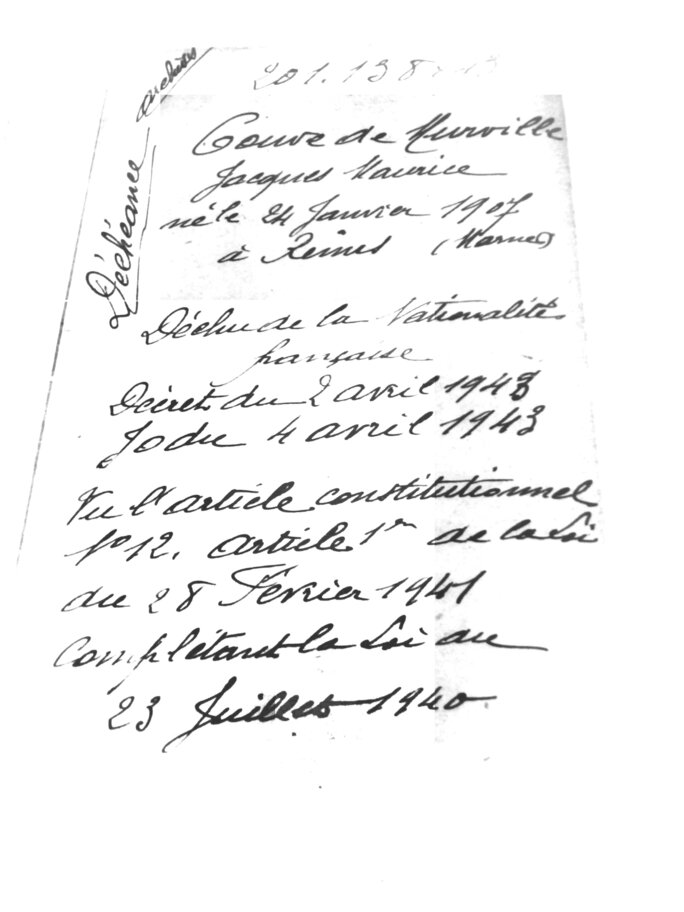 Archives
Déchéance
201.138
Couve de Murville
Jacques Maurice
né le 24 Janvier 1907
à Reims (Marne)
Déchu de la Nationalité
française
Décret du 2 avril 1943
JO du 4 avril 1943
Vu l'article constitutionnel
N° 12. article 1er de la Loi
du 28 Février 1941
Complétant la Loi du
23 Juillet 1940